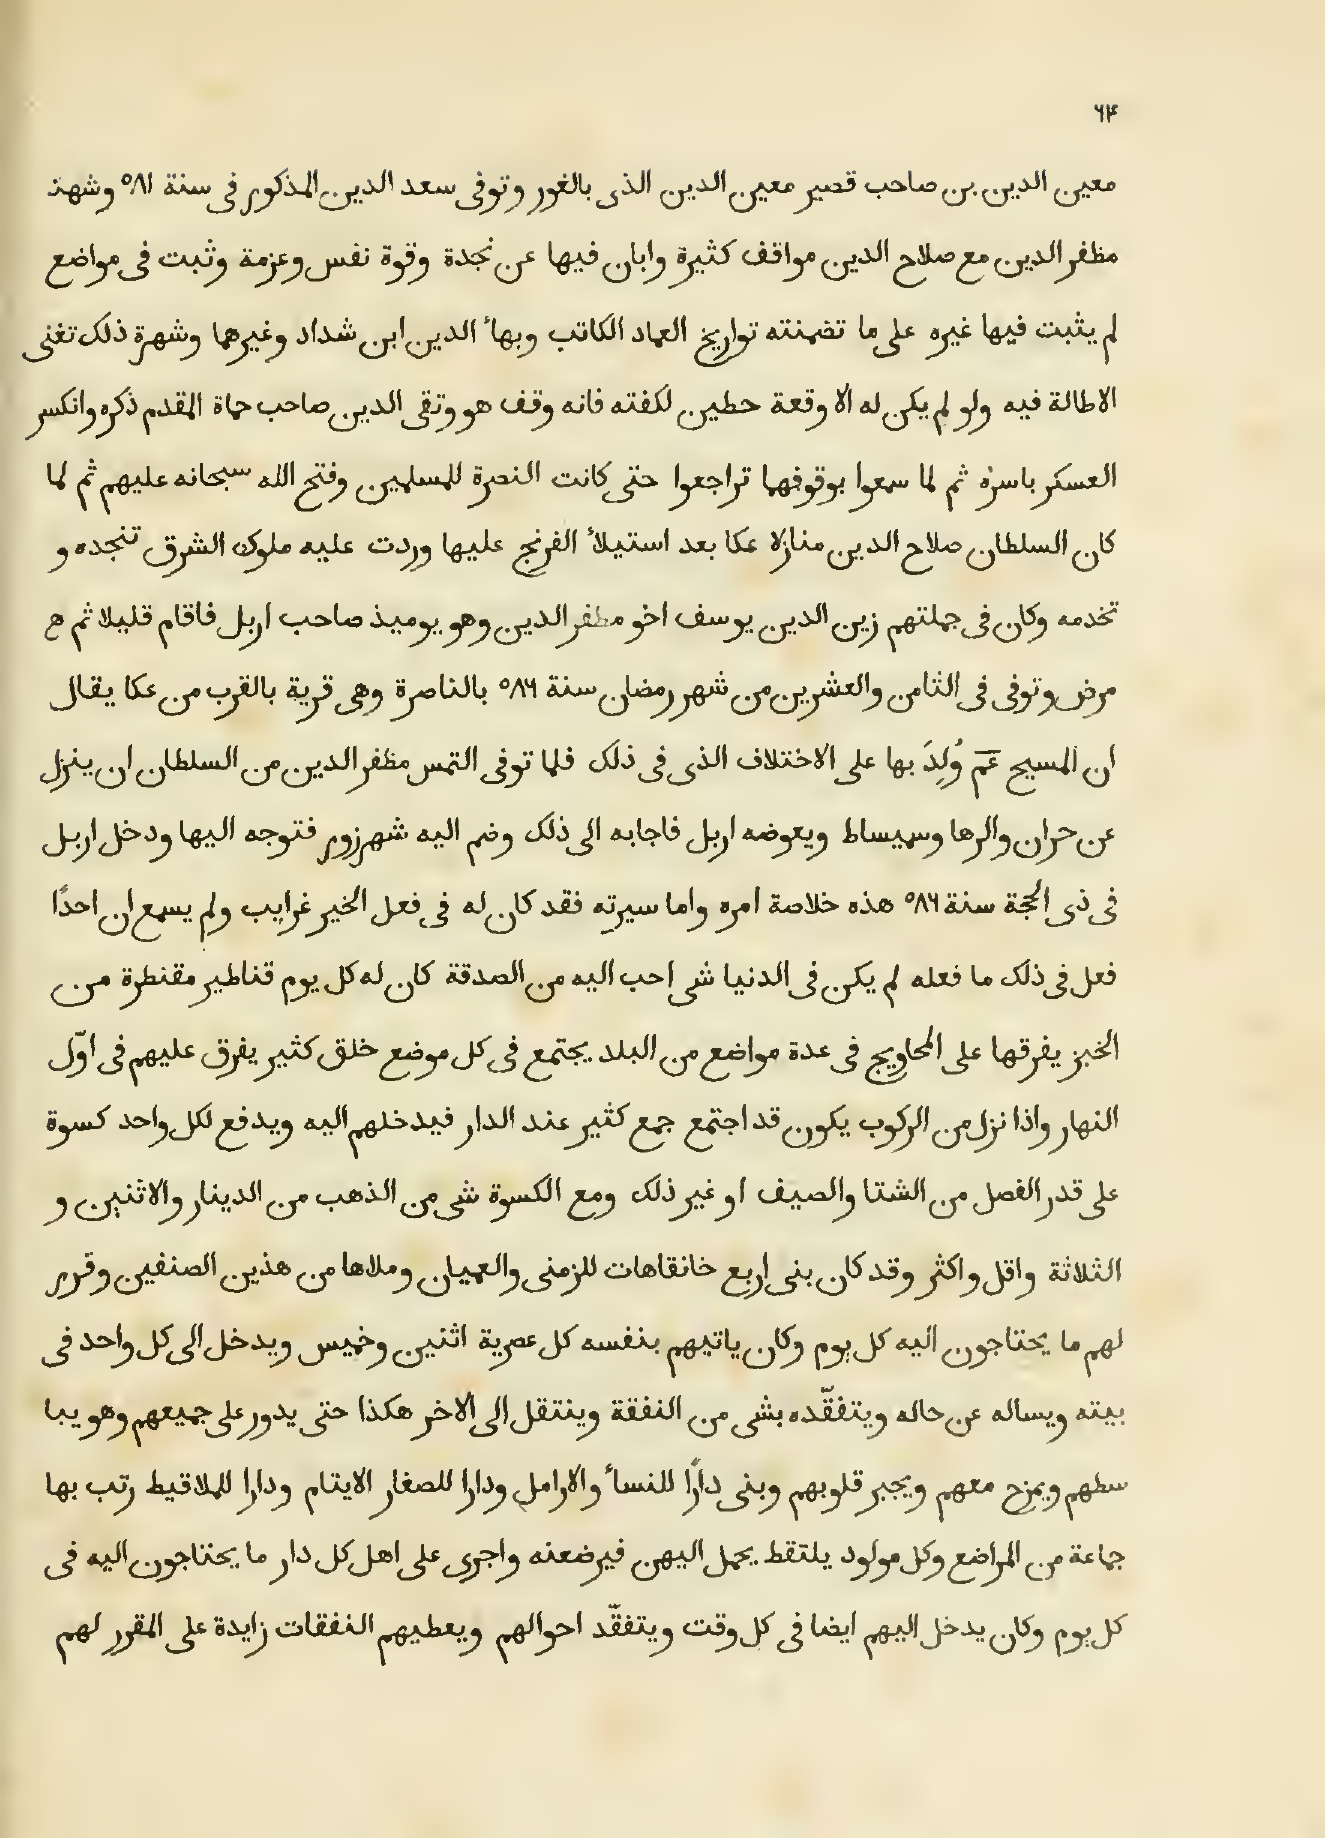 ٦٤
معين الدين بن صاحب قصير معين الدين الذى بالغور وتوفى سعد الدين المذكور فى سنة ٥٨١ وشهد
مظفر الدين مع صلاح الدين مواقف كثيرة وابان فيها عن نجدة وقوة نفس وعزمة وثبت فى مواضع
لم يثبت فيها غيره على ما تضمنته تواريخ العماد الكاتب وبهاء الدين ابن شداد وغيرهما وشهرة ذلك تغنى
الاطالة فيه ولو لم يكن له الا وقعة حطين لكفته فانه وقف هو وتقى الدين صاحب حماة المقدم ذكره وانكسر
العسكر باسره ثم لما سمعوا بوقوفهما تراجعوا حتى كانت النصرة للمسلمين وفتح الله سبحانه عليهم ثم لما
كان السلطان صلاح الدين منازلا عكا بعد استيلاء الفرنج عليها وردت عليه ملوك الشرق تنجده و
تخدمه وكان فى جملتهم زين الدين يوسف اخو مظفر الدين وهو يوميذ صاحب اربل فاقام قليلا ثم
مرض وتوفى فى الثامن والعشرين من شهر رمضان سنة ٥٨٦ بالناصرة وهى قرية بالقرب من عكا يقال
ان المسيح عم وُلِدَ بها على الاختلاف الذى فى ذلك فلما توفى التمس مظفر الدين من السلطان ان ينزل
عن حران والرها وسميساط ويعوضه اربل فاجابه الى ذلك وضم اليه شهرزور فتوجه اليها ودخل اربل
فى ذى الحجة سنة ٥٨٦ هذه خلاصة امره واما سيرته فقد كان له فى فعل الخير غرايب ولم يسمع ان احدًا
فعل فى ذلك ما فعله لم يكن فى الدنيا شى احب اليه من الصدقة كان له كل يوم قناطير مقنطرة من
الخبز يفرقها على المحاويج فى عدة مواضع من البلد يجتمع فى كل موضع خلق كثير يفرق عليهم فى اوّل
النهار واذا نزل من الركوب يكون قد اجتمع جمع كثير عند الدار فيدخلهم اليه ويدفع لكل واحد كسوة
على قدر الفصل من الشتا والصيف او غير ذلك ومع الكسوة شى من الذهب من الدينار والاثنين و
الثلاثة واقل واكثر وقد كان بنى اربع خانقاهات للزمنى والعميان وملاها من هذين الصنفين وقرر
لهم ما يحتاجون اليه كل يوم وكان ياتيهم بنفسه كل عصرية اثنين وخميس ويدخل الى كل واحد فى
بيته ويساله عن حاله ويتفقّده بشى من النفقة وينتقل الى الاخر هكذا حتى يدور على جميعهم وهو يبا
سطهم ويمزح معهم ويجبر قلوبهم وبنى دارًا للنساء والارامل ودارا للصغار الايتام ودارا للملاقيط رتب بها
جماعة من المراضع وكل مولود يلتقط يحمل اليهن فيرضعنه واجرى على اهل كل دار ما يحتاجون اليه فى
كل يوم وكان يدخل اليهم ايضا فى كل وقت ويتفقّد احوالهم ويعطيهم النفقات زايدة على المقرر لهم